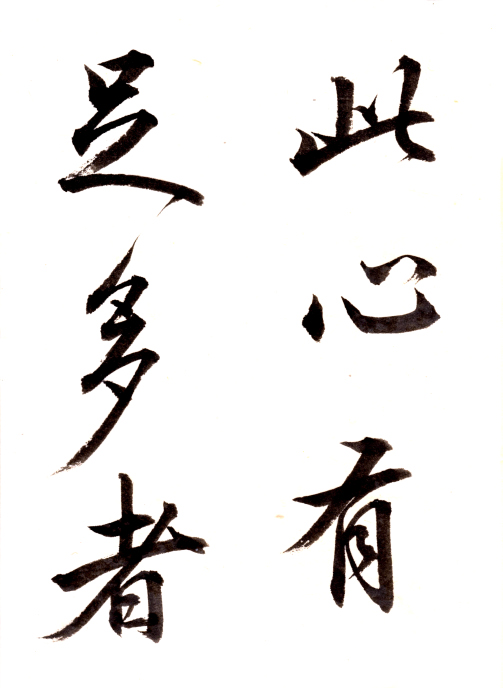 此心有
足多者